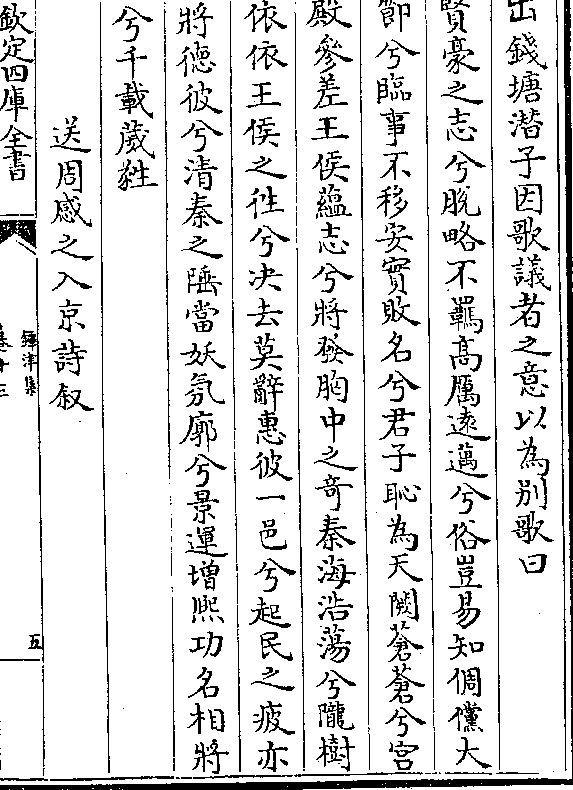 出錢塘潛子因歌議者之意以為别歌曰
賢豪之志兮脱略不羈高厲遠邁兮俗豈易知倜儻大
節兮臨事不移安實敗名兮君子恥為天闕蒼蒼兮宫
殿參差王侯藴志兮將發胸中之奇秦海浩蕩兮隴樹
依依王侯之徃兮决去莫辭惠彼一邑兮起民之疲亦
將德彼兮清秦之陲當妖氛廓兮景運增熙功名相將
兮千載葳甤
送周感之入京詩叙
欽定四庫全書
鐔津集
卷十三
五